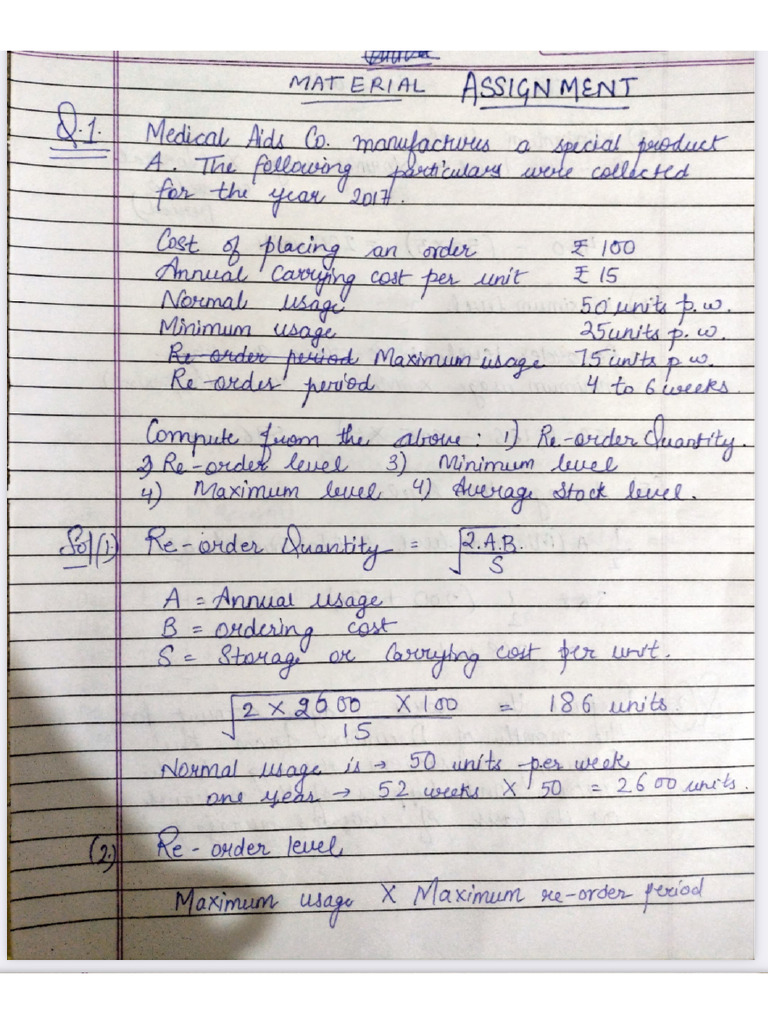 MATERIAL ASSIGNMENT
Q.1. Medical Aids Co. manufactures a special product
A. The following particulars were collected
for the year 2017.
Cost of placing an order ₹ 100
Annual Carrying cost per unit ₹ 15
Normal usage 50 units p.w.
Minimum usage 25 units p.w.
Re-order period Maximum usage 75 units p.w.
Re-order period 4 to 6 weeks.
Compute from the above: 1) Re-order Quantity.
2) Re-order level 3) Minimum level
4) Maximum level 4) Average Stock level.
Sol(1.) Re-order Quantity = √2.A.B.
S
A = Annual usage
B = ordering cost
S = Storage or Carrying cost per unit.
√2 × 2600 × 100 = 186 units
15
Normal usage is → 50 units per week
one year → 52 weeks × 50 = 2600 units.
(2.) Re-order level
Maximum usage × Maximum re-order period